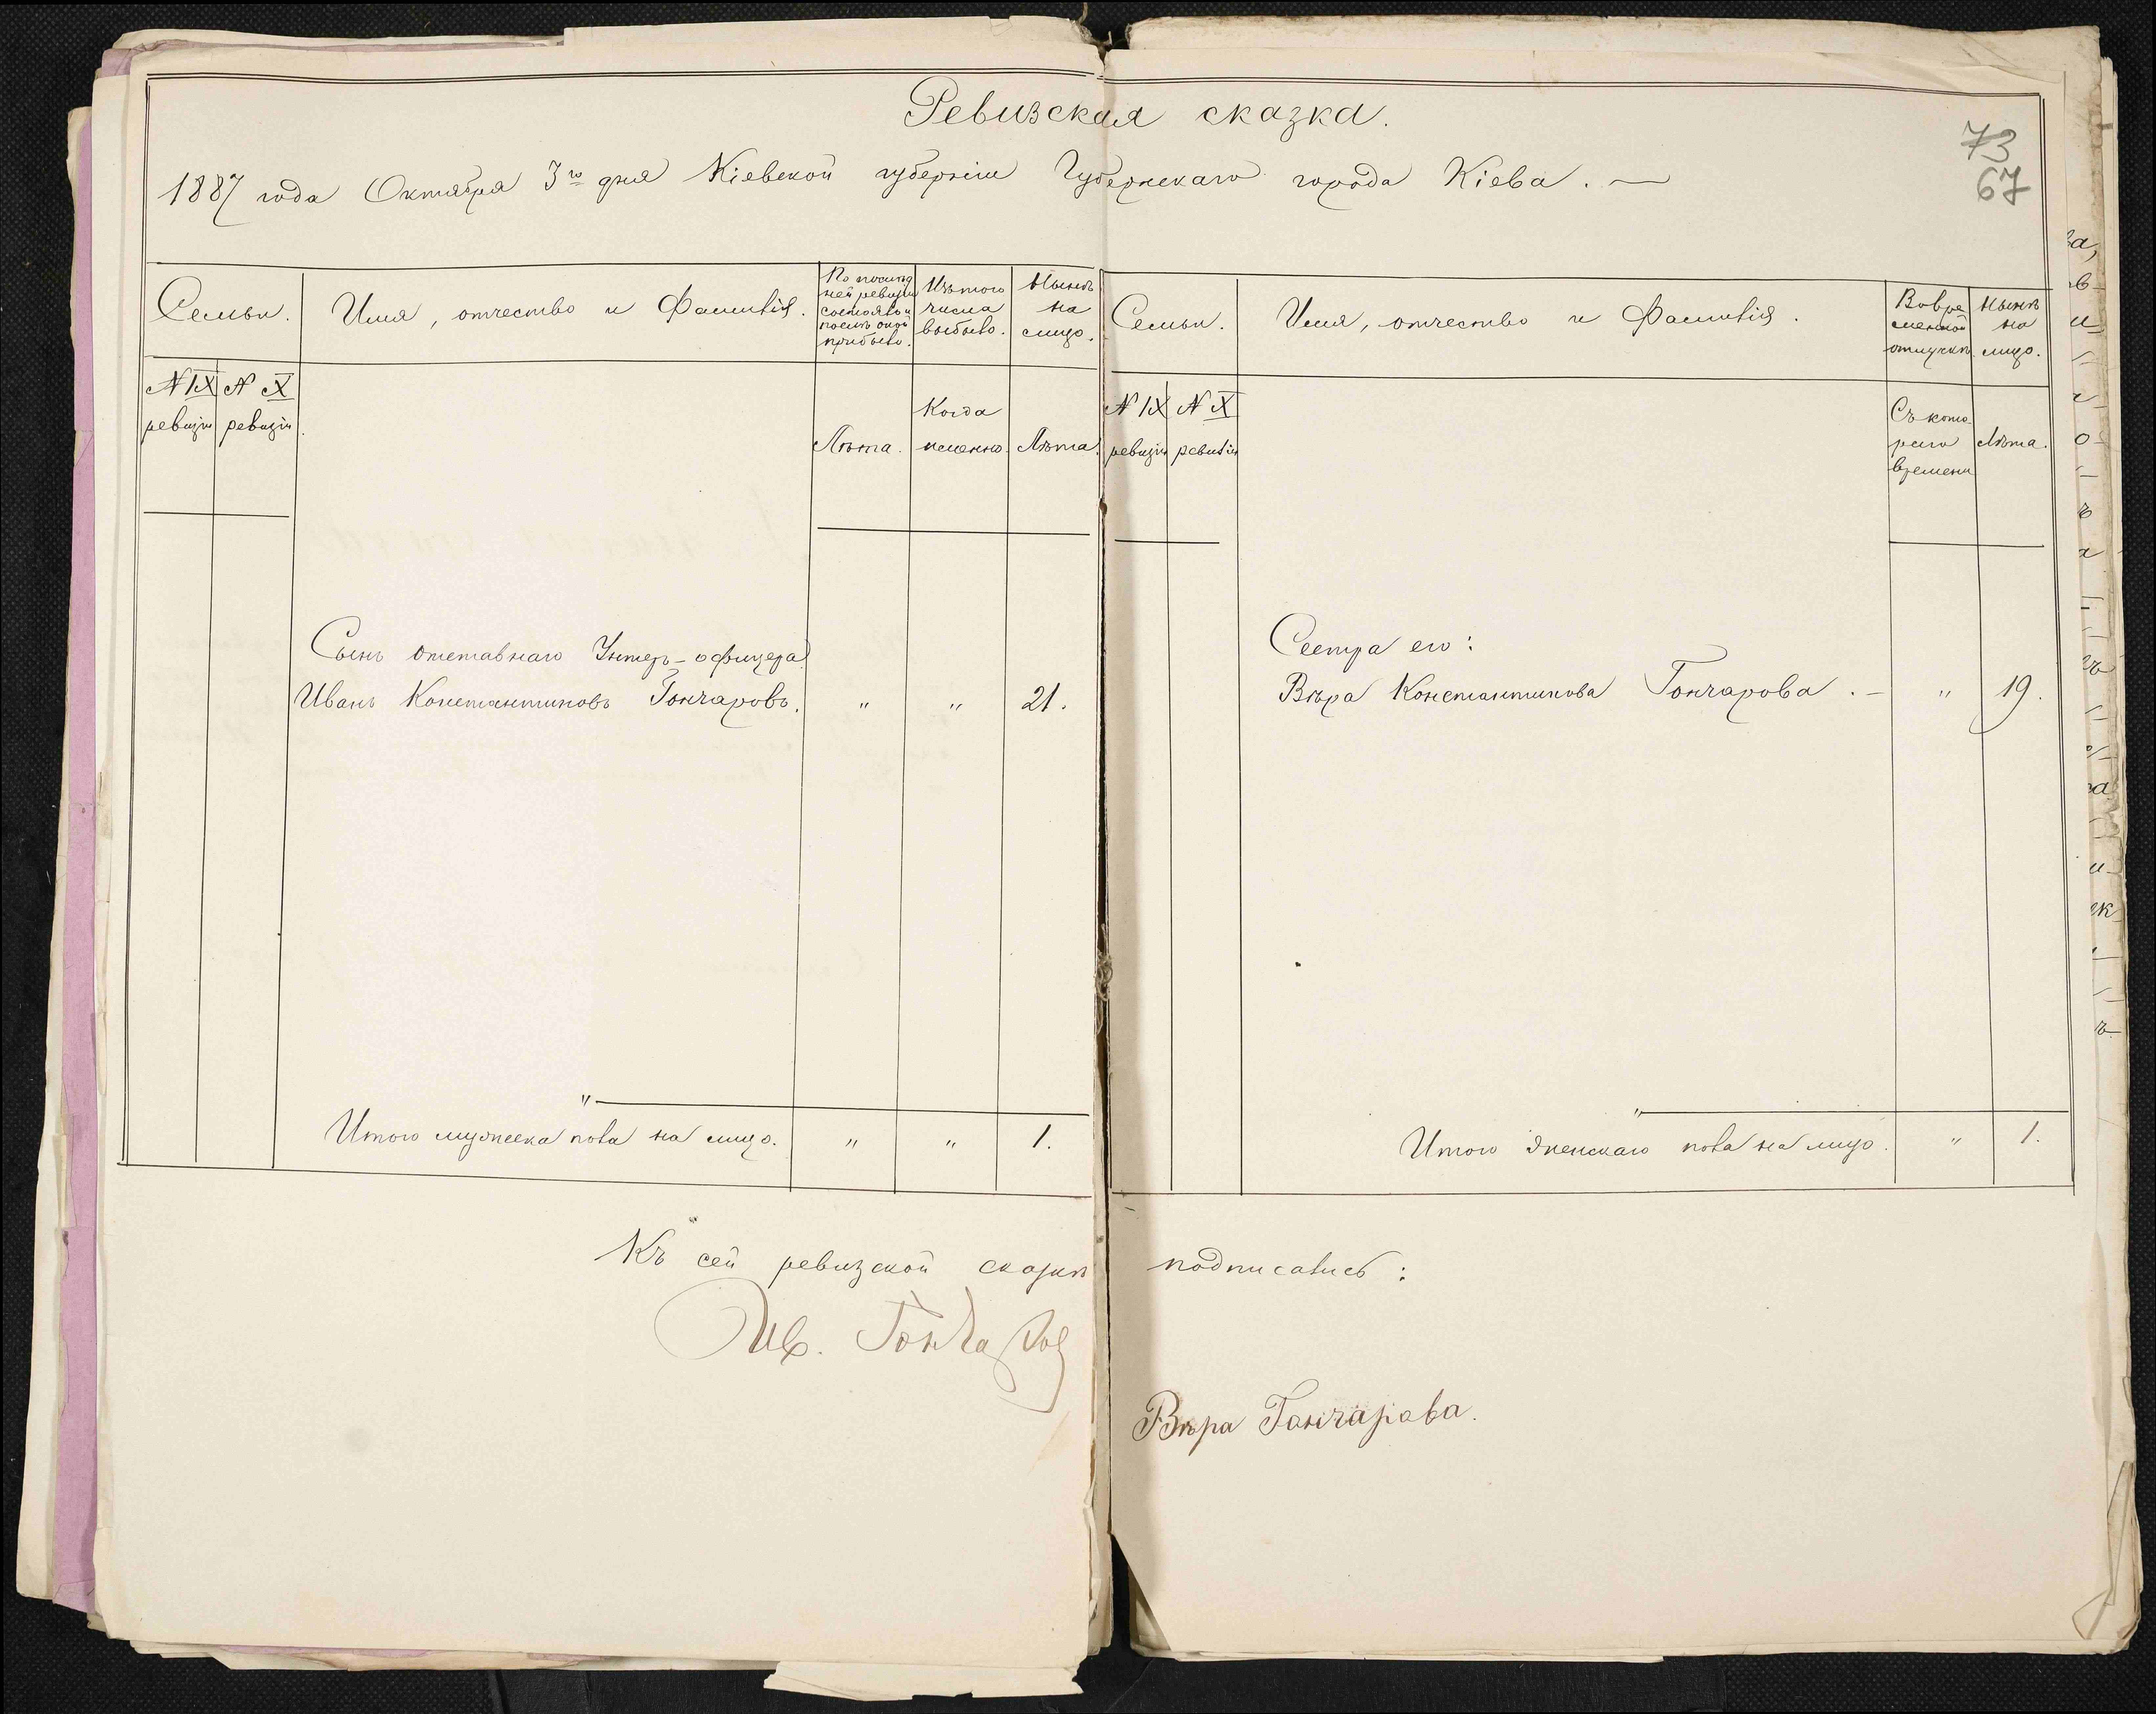 Ревизская сказка.
73
67
1887 года Октября 3го дня Кіевской губерніи Губернскаго города Кіева. —
Семьи.
Имя, отчество и Фамилія.
По послѣд
ней ревизіи
состояло и
послѣ оной
прибыло.
Изъ того
числа
выбыло.
Нынѣ
на
лицо.
№ IX
ревизіи
№ X
ревизіи
Лѣта.
Когда
именно.
Лѣта.
Сынъ отставнаго Унтеръ-офицера
Иванъ Константиновъ Гончаровъ. " " 21.
Итого мужеска пола на лицо. " " 1.
Семьи.
Имя, отчество и Фамилія.
Во вре
менной
отлучкѣ
Нынѣ
на
лицо.
№ IX
ревизіи
№ X
ревизіи
Съ кото
раго
времени
Лѣта.
Сестра его:
Вѣра Константинова Гончарова. — " 19.
Итого женскаго пола на лицо. " 1.
Къ сей ревизской сказкѣ подписались:
Ив. Гончаров
Вѣра Ганчарова.